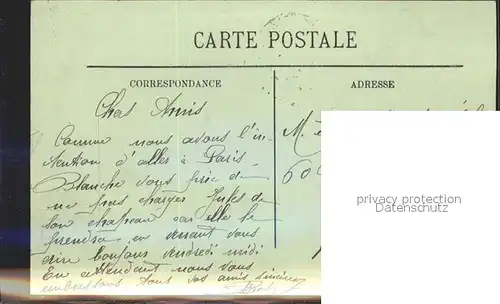 CARTE POSTALE
CORRESPONDANCE
ADRESSE
Chers Amis
Comme nous avons l'in-
tention d'aller à Paris
Blanche vous prie de
ne pas charger Jules de
son chapeau car elle le
prendra en venant vous
dire bonjour vendredi midi
En attendant nous vous
embrassons tous vos amis sincères
M.
privacy protection
Datenschutz